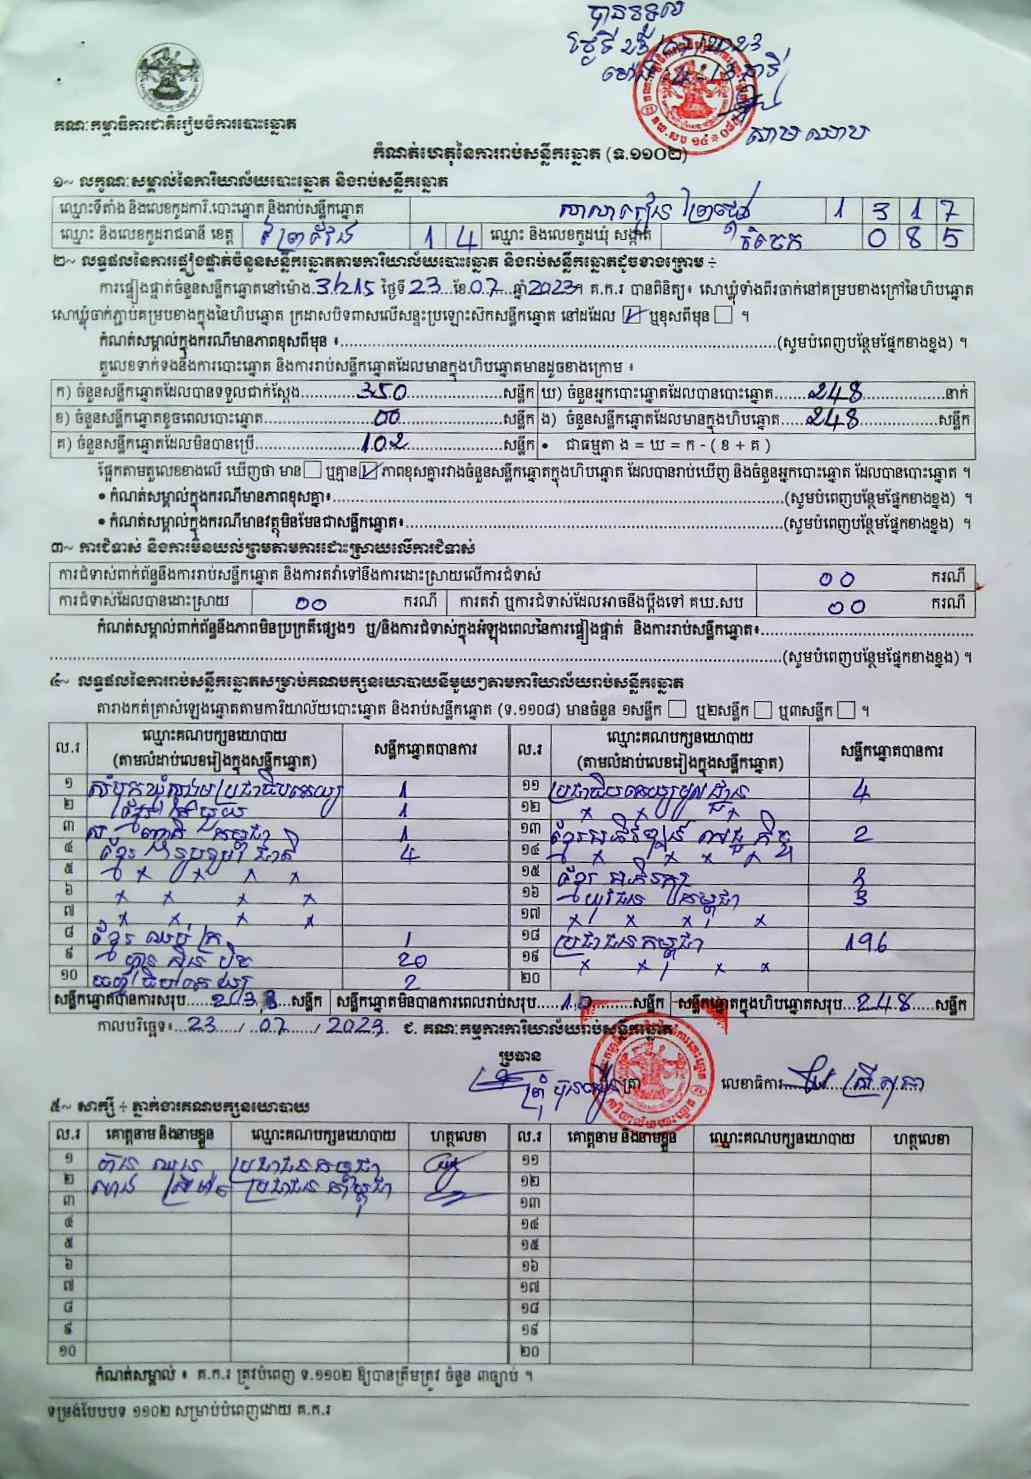 បានទទួល
គណៈកម្មាធិការជាតិរៀបចំការបោះឆ្នោត
កំណត់ហេតុនៃការរាប់សន្លឹកឆ្នោត (ទ.១១០២)
១~ លក្ខណៈសម្គាល់នៃការិយាល័យបោះឆ្នោត និងរាប់សន្លឹកឆ្នោត
ឈ្មោះទីតាំង និងលេខកូដការិ.បោះឆ្នោត និងរាប់សន្លឹកឆ្នោត 1 3 1 7
ឈ្មោះ និងលេខកូដរាជធានី ខេត្ត ព្រៃវែង 1 4 ឈ្មោះ និងលេខកូដឃុំ សង្កាត់ 0 8 5
២~ លទ្ធផលនៃការផ្ទៀងផ្ទាត់ចំនួនសន្លឹកឆ្នោតតាមការិយាល័យបោះឆ្នោត និងរាប់សន្លឹកឆ្នោតដូចខាងក្រោម ÷
ការផ្ទៀងផ្ទាត់ចំនួនសន្លឹកឆ្នោតនៅម៉ោង 3:215 ថ្ងៃទី 23 ខែ 07 ឆ្នាំ 2023 ។ គ.ក.រ បានពិនិត្យ៖ សោឃ្លុំទាំងពីរចាក់នៅគម្របខាងក្រៅនៃហិបឆ្នោត
សោឃ្លុំចាក់ភ្ជាប់គម្របខាងក្នុងនៃហិបឆ្នោត ក្រដាសបិទពាសលើសន្ទះប្រឡោះសឹកសន្លឹកឆ្នោត នៅដដែល ☑ ឬខុសពីមុន ☐ ។
កំណត់សម្គាល់ក្នុងករណីមានភាពខុសពីមុន ៖ (សូមបំពេញបន្ថែមផ្នែកខាងខ្នង) ។
តួលេខទាក់ទងនឹងការបោះឆ្នោត និងការរាប់សន្លឹកឆ្នោតដែលមានក្នុងហិបឆ្នោតមានដូចខាងក្រោម ៖
ក) ចំនួនសន្លឹកឆ្នោតដែលបានទទួលជាក់ស្តែង 350 សន្លឹក ឃ) ចំនួនអ្នកបោះឆ្នោតដែលបានបោះឆ្នោត 248 នាក់
ខ) ចំនួនសន្លឹកឆ្នោតខូចពេលបោះឆ្នោត 00 សន្លឹក ង) ចំនួនសន្លឹកឆ្នោតដែលមានក្នុងហិបឆ្នោត 248 សន្លឹក
គ) ចំនួនសន្លឹកឆ្នោតដែលមិនបានប្រើ 102 សន្លឹក • ជាធម្មតា ង = ឃ = ក - ( ខ + គ )
ផ្អែកតាមតួលេខខាងលើ ឃើញថា មាន ☐ ឬគ្មាន ☑ ភាពខុសគ្នារវាងចំនួនសន្លឹកឆ្នោតក្នុងហិបឆ្នោត ដែលបានរាប់ឃើញ និងចំនួនអ្នកបោះឆ្នោត ដែលបានបោះឆ្នោត ។
• កំណត់សម្គាល់ក្នុងករណីមានភាពខុសគ្នា៖ (សូមបំពេញបន្ថែមផ្នែកខាងខ្នង) ។
• កំណត់សម្គាល់ក្នុងករណីមានវត្ថុមិនមែនជាសន្លឹកឆ្នោត៖ (សូមបំពេញបន្ថែមផ្នែកខាងខ្នង) ។
៣~ ការជំទាស់ និងការមិនយល់ព្រមតាមការដោះស្រាយលើការជំទាស់
ការជំទាស់ពាក់ព័ន្ធនឹងការរាប់សន្លឹកឆ្នោត និងការតវ៉ាទៅនឹងការដោះស្រាយលើការជំទាស់ 00 ករណី
ការជំទាស់ដែលបានដោះស្រាយ 00 ករណី ការតវ៉ា ឬការជំទាស់ដែលអាចនឹងប្តឹងទៅ គឃ.សប 00 ករណី
កំណត់សម្គាល់ពាក់ព័ន្ធនឹងភាពមិនប្រក្រតីផ្សេងៗ ឬ/និងការជំទាស់ក្នុងអំឡុងពេលនៃការផ្ទៀងផ្ទាត់ និងការរាប់សន្លឹកឆ្នោត៖
(សូមបំពេញបន្ថែមផ្នែកខាងខ្នង) ។
៤~ លទ្ធផលនៃការរាប់សន្លឹកឆ្នោតសម្រាប់គណបក្សនយោបាយនីមួយៗតាមការិយាល័យរាប់សន្លឹកឆ្នោត
តារាងកត់ត្រាសំឡេងឆ្នោតតាមការិយាល័យបោះឆ្នោត និងរាប់សន្លឹកឆ្នោត (ទ.១១០៨) មានចំនួន ១សន្លឹក ☐ ឬ២សន្លឹក ☐ ឬ៣សន្លឹក ☐ ។
ល.រ ឈ្មោះគណបក្សនយោបាយ (តាមលំដាប់លេខរៀងក្នុងសន្លឹកឆ្នោត) សន្លឹកឆ្នោតបានការ ល.រ ឈ្មោះគណបក្សនយោបាយ (តាមលំដាប់លេខរៀងក្នុងសន្លឹកឆ្នោត) សន្លឹកឆ្នោតបានការ
១ សំបុកឃ្មុំសង្គមប្រជាធិបតេយ្យ 1 ១១ ប្រជាធិបតេយ្យមូលដ្ឋាន 4
២ ខ្មែររួបរួម 1 ១២ x x x
៣ សញ្ជាតិកម្ពុជា 1 ១៣ ខ្មែរអភិវឌ្ឍន៍សេដ្ឋកិច្ច 2
៤ ខ្មែរ ជាតិ 4 ១៤ x x x
៥ x x x x ១៥ ខ្មែរអភិរក្ស
៦ x x x x ១៦ យុវជនកម្ពុជា 3
៧ x x x x ១៧ x x x x
៨ ខ្មែរឈប់ក្រ 1 ១៨ ប្រជាជនកម្ពុជា 196
៩ ហ្វ៊ុនស៊ិនប៉ិច 20 ១៩ x x x x
១០ ធម្មាធិបតេយ្យ 2 ២០
សន្លឹកឆ្នោតបានការសរុប 238 សន្លឹក សន្លឹកឆ្នោតមិនបានការពេលរាប់សរុប 10 សន្លឹក សន្លឹកឆ្នោតក្នុងហិបឆ្នោតសរុប 248 សន្លឹក
កាលបរិច្ឆេទ៖ 23 / 07 / 2023 ជ. គណៈកម្មការការិយាល័យរាប់សន្លឹកឆ្នោត
ប្រធាន
ត្រា លេខាធិការ
៥~ សាក្សី ÷ ភ្នាក់ងារគណបក្សនយោបាយ
ល.រ គោត្តនាម និងនាមខ្លួន ឈ្មោះគណបក្សនយោបាយ ហត្ថលេខា ល.រ គោត្តនាម និងនាមខ្លួន ឈ្មោះគណបក្សនយោបាយ ហត្ថលេខា
១ ប្រជាជនកម្ពុជា ១១
២ ប្រជាជនកម្ពុជា ១២
៣ ១៣
៤ ១៤
៥ ១៥
៦ ១៦
៧ ១៧
៨ ១៨
៩ ១៩
១០ ២០
កំណត់សម្គាល់ ៖ គ.ក.រ ត្រូវបំពេញ ទ.១១០២ ឱ្យបានត្រឹមត្រូវ ចំនួន ៣ច្បាប់ ។
ទម្រង់បែបបទ ១១០២ សម្រាប់បំពេញដោយ គ.ក.រ